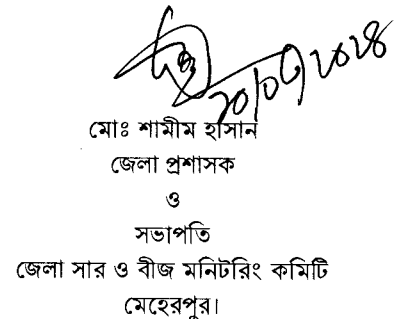 ২০/০৩/২০২৪
মোঃ শামীম হাসান
জেলা প্রশাসক
ও
সভাপতি
জেলা সার ও বীজ মনিটরিং কমিটি
মেহেরপুর।